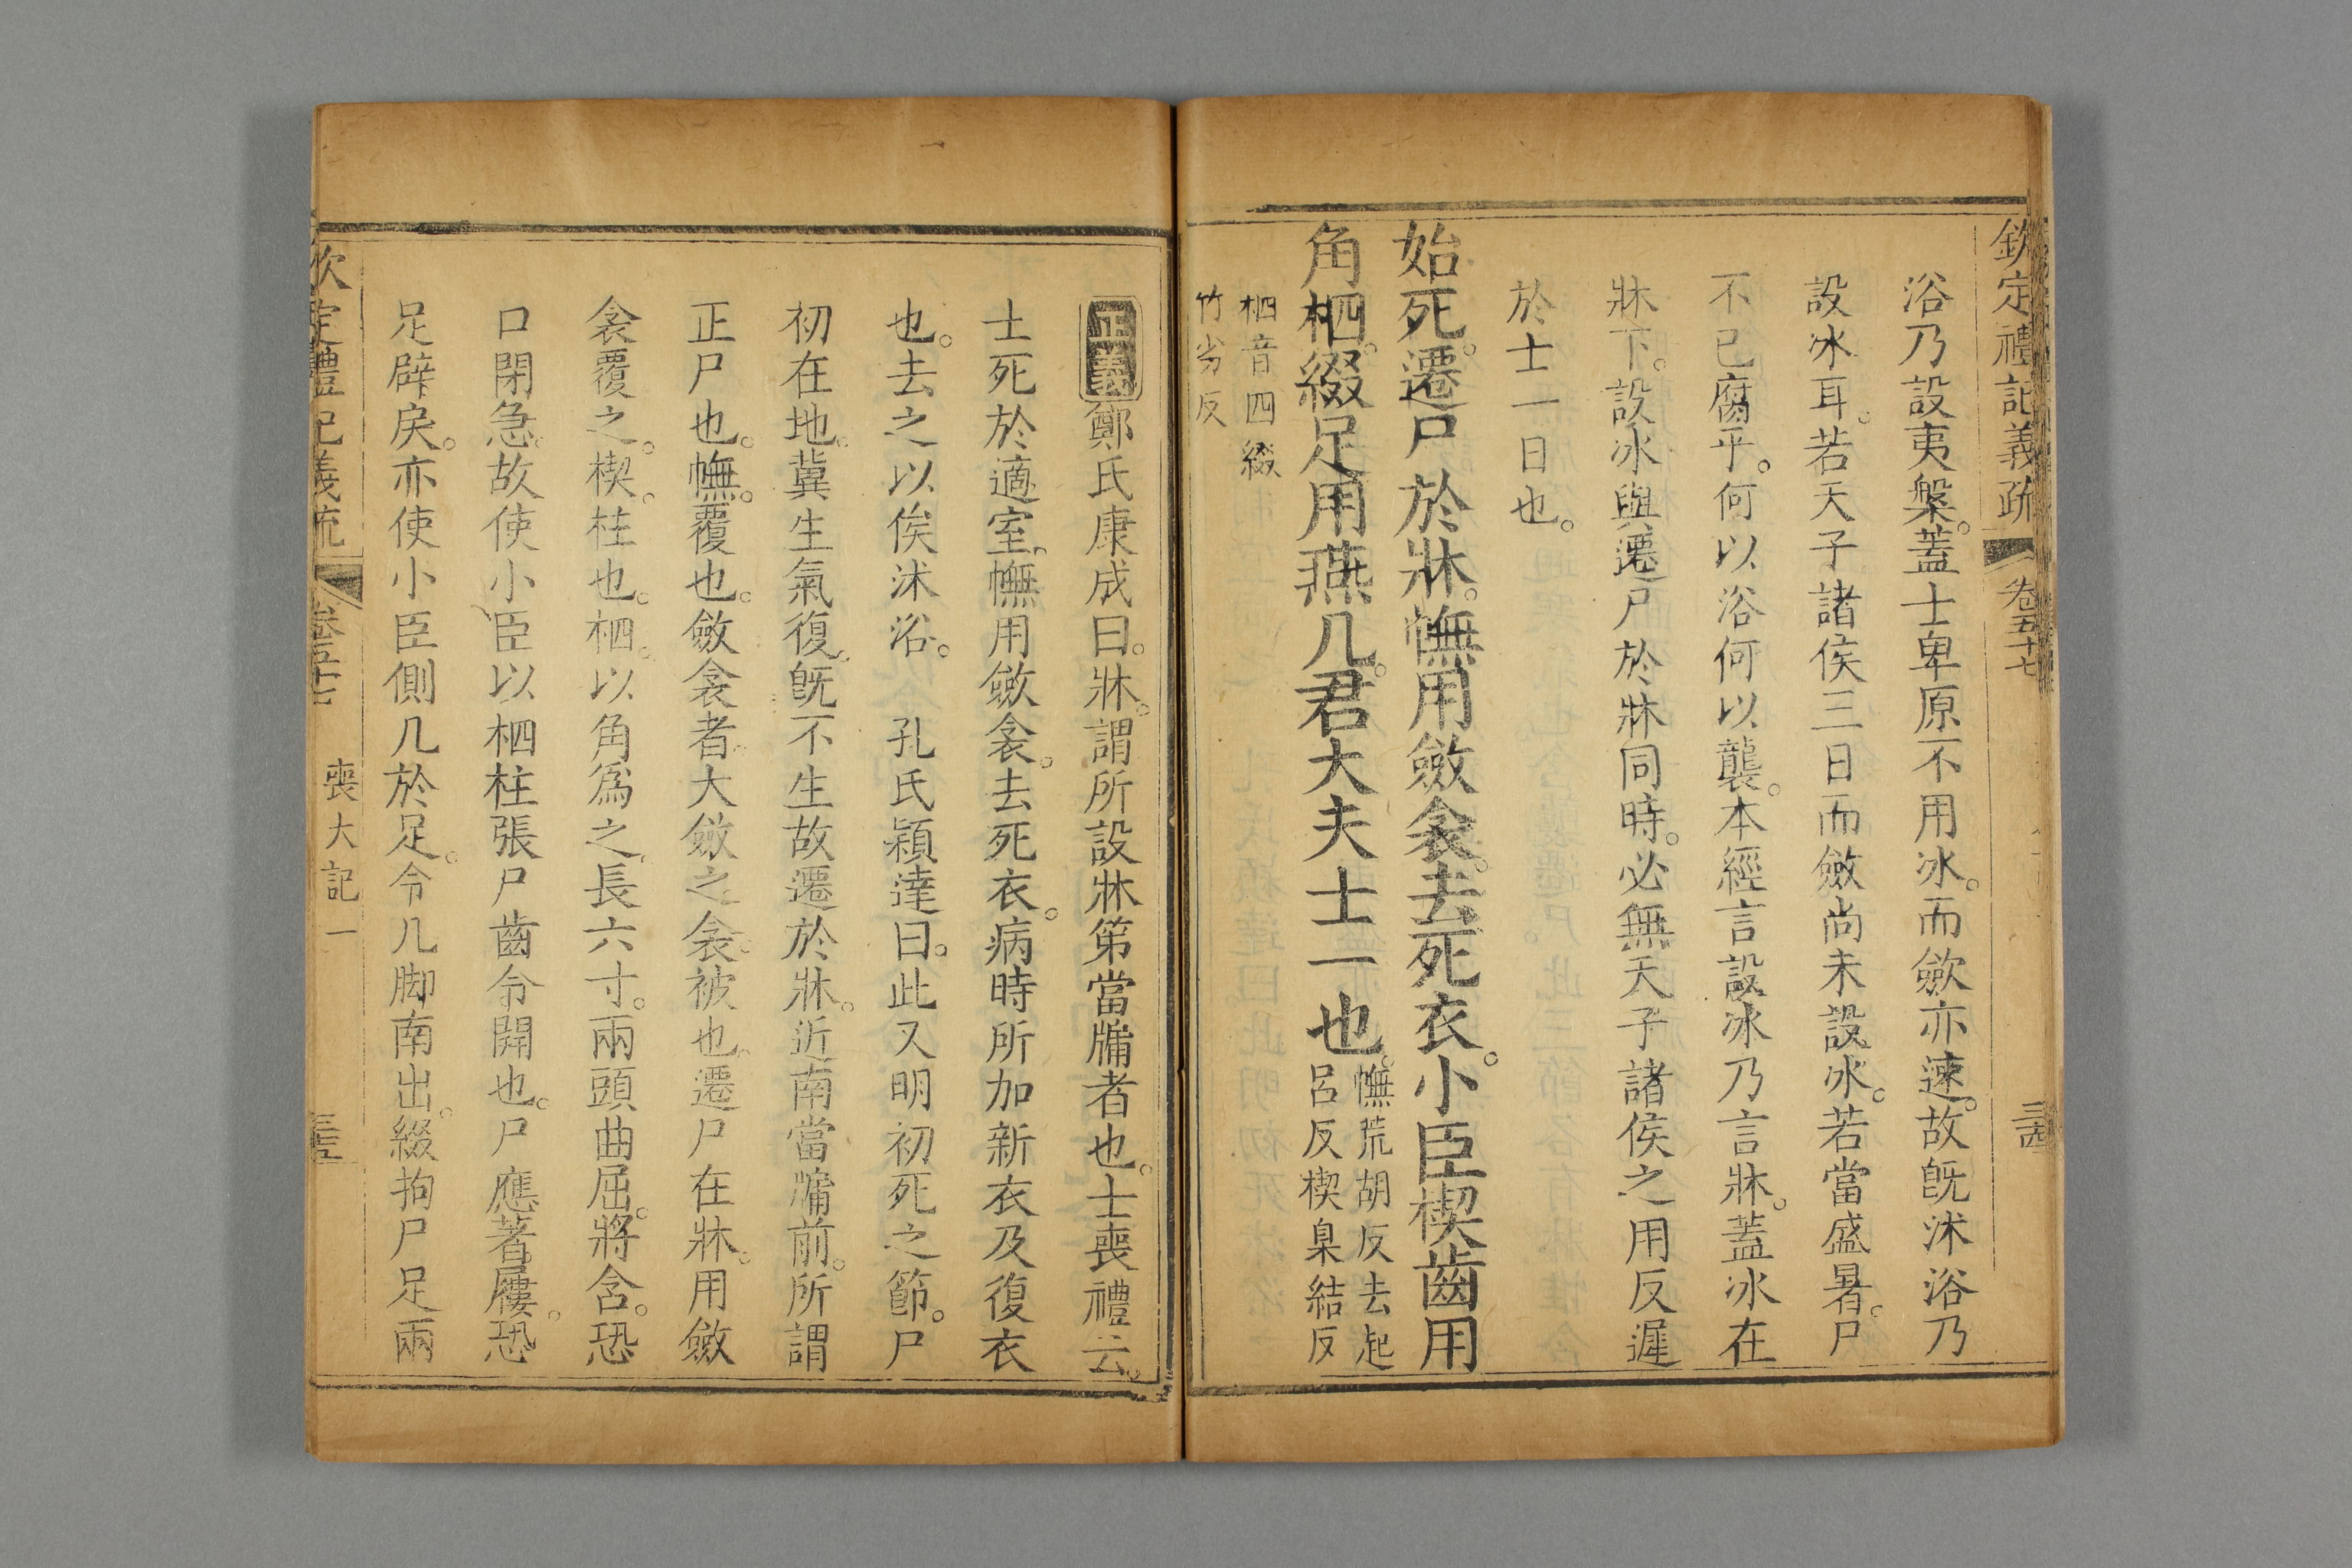 欽定禮記義疏 卷五十七 三西
浴乃設夷槃。蓋士卑原不用冰。而歛亦速。故旣沐浴乃
設冰耳。若天子諸侯三日而斂尚未設冰。若當盛暑。尸
不已腐乎。何以浴何以襲。本經言設冰乃言牀。蓋冰在
牀下。設冰與遷尸於牀同時。必無天子諸侯之用反遲
於士一日也。
始死。遷尸於牀。幠用斂衾。去死衣。小臣楔齒用
角柶。綴足用燕几。君大夫士一也。幠荒胡反去起
呂反楔臬結反
柶音四綴
竹劣反
正義鄭氏康成曰。牀。謂所設牀笫當牖者也。士喪禮云。
士死於適室。幠用斂衾。去死衣。病時所加新衣及復衣
也。去之以俟沐浴。 孔氏穎達曰。此又明初死之節。尸
初在地。冀生氣復。旣不生故遷於牀。近南當牖前。所謂
正尸也。幠。覆也。斂衾者。大斂之衾。被也。遷尸在牀。用斂
衾覆之。楔。柱也。柶。以角爲之。長六寸。兩頭曲屈。將含。恐
口閉急。故使小臣以柶柱張尸齒令開也。尸應著屨。恐
足辟戾。亦使小臣側几於足。令几脚南出。綴拘尸足兩
欽定禮記義疏 卷五十七 喪大記一 三五